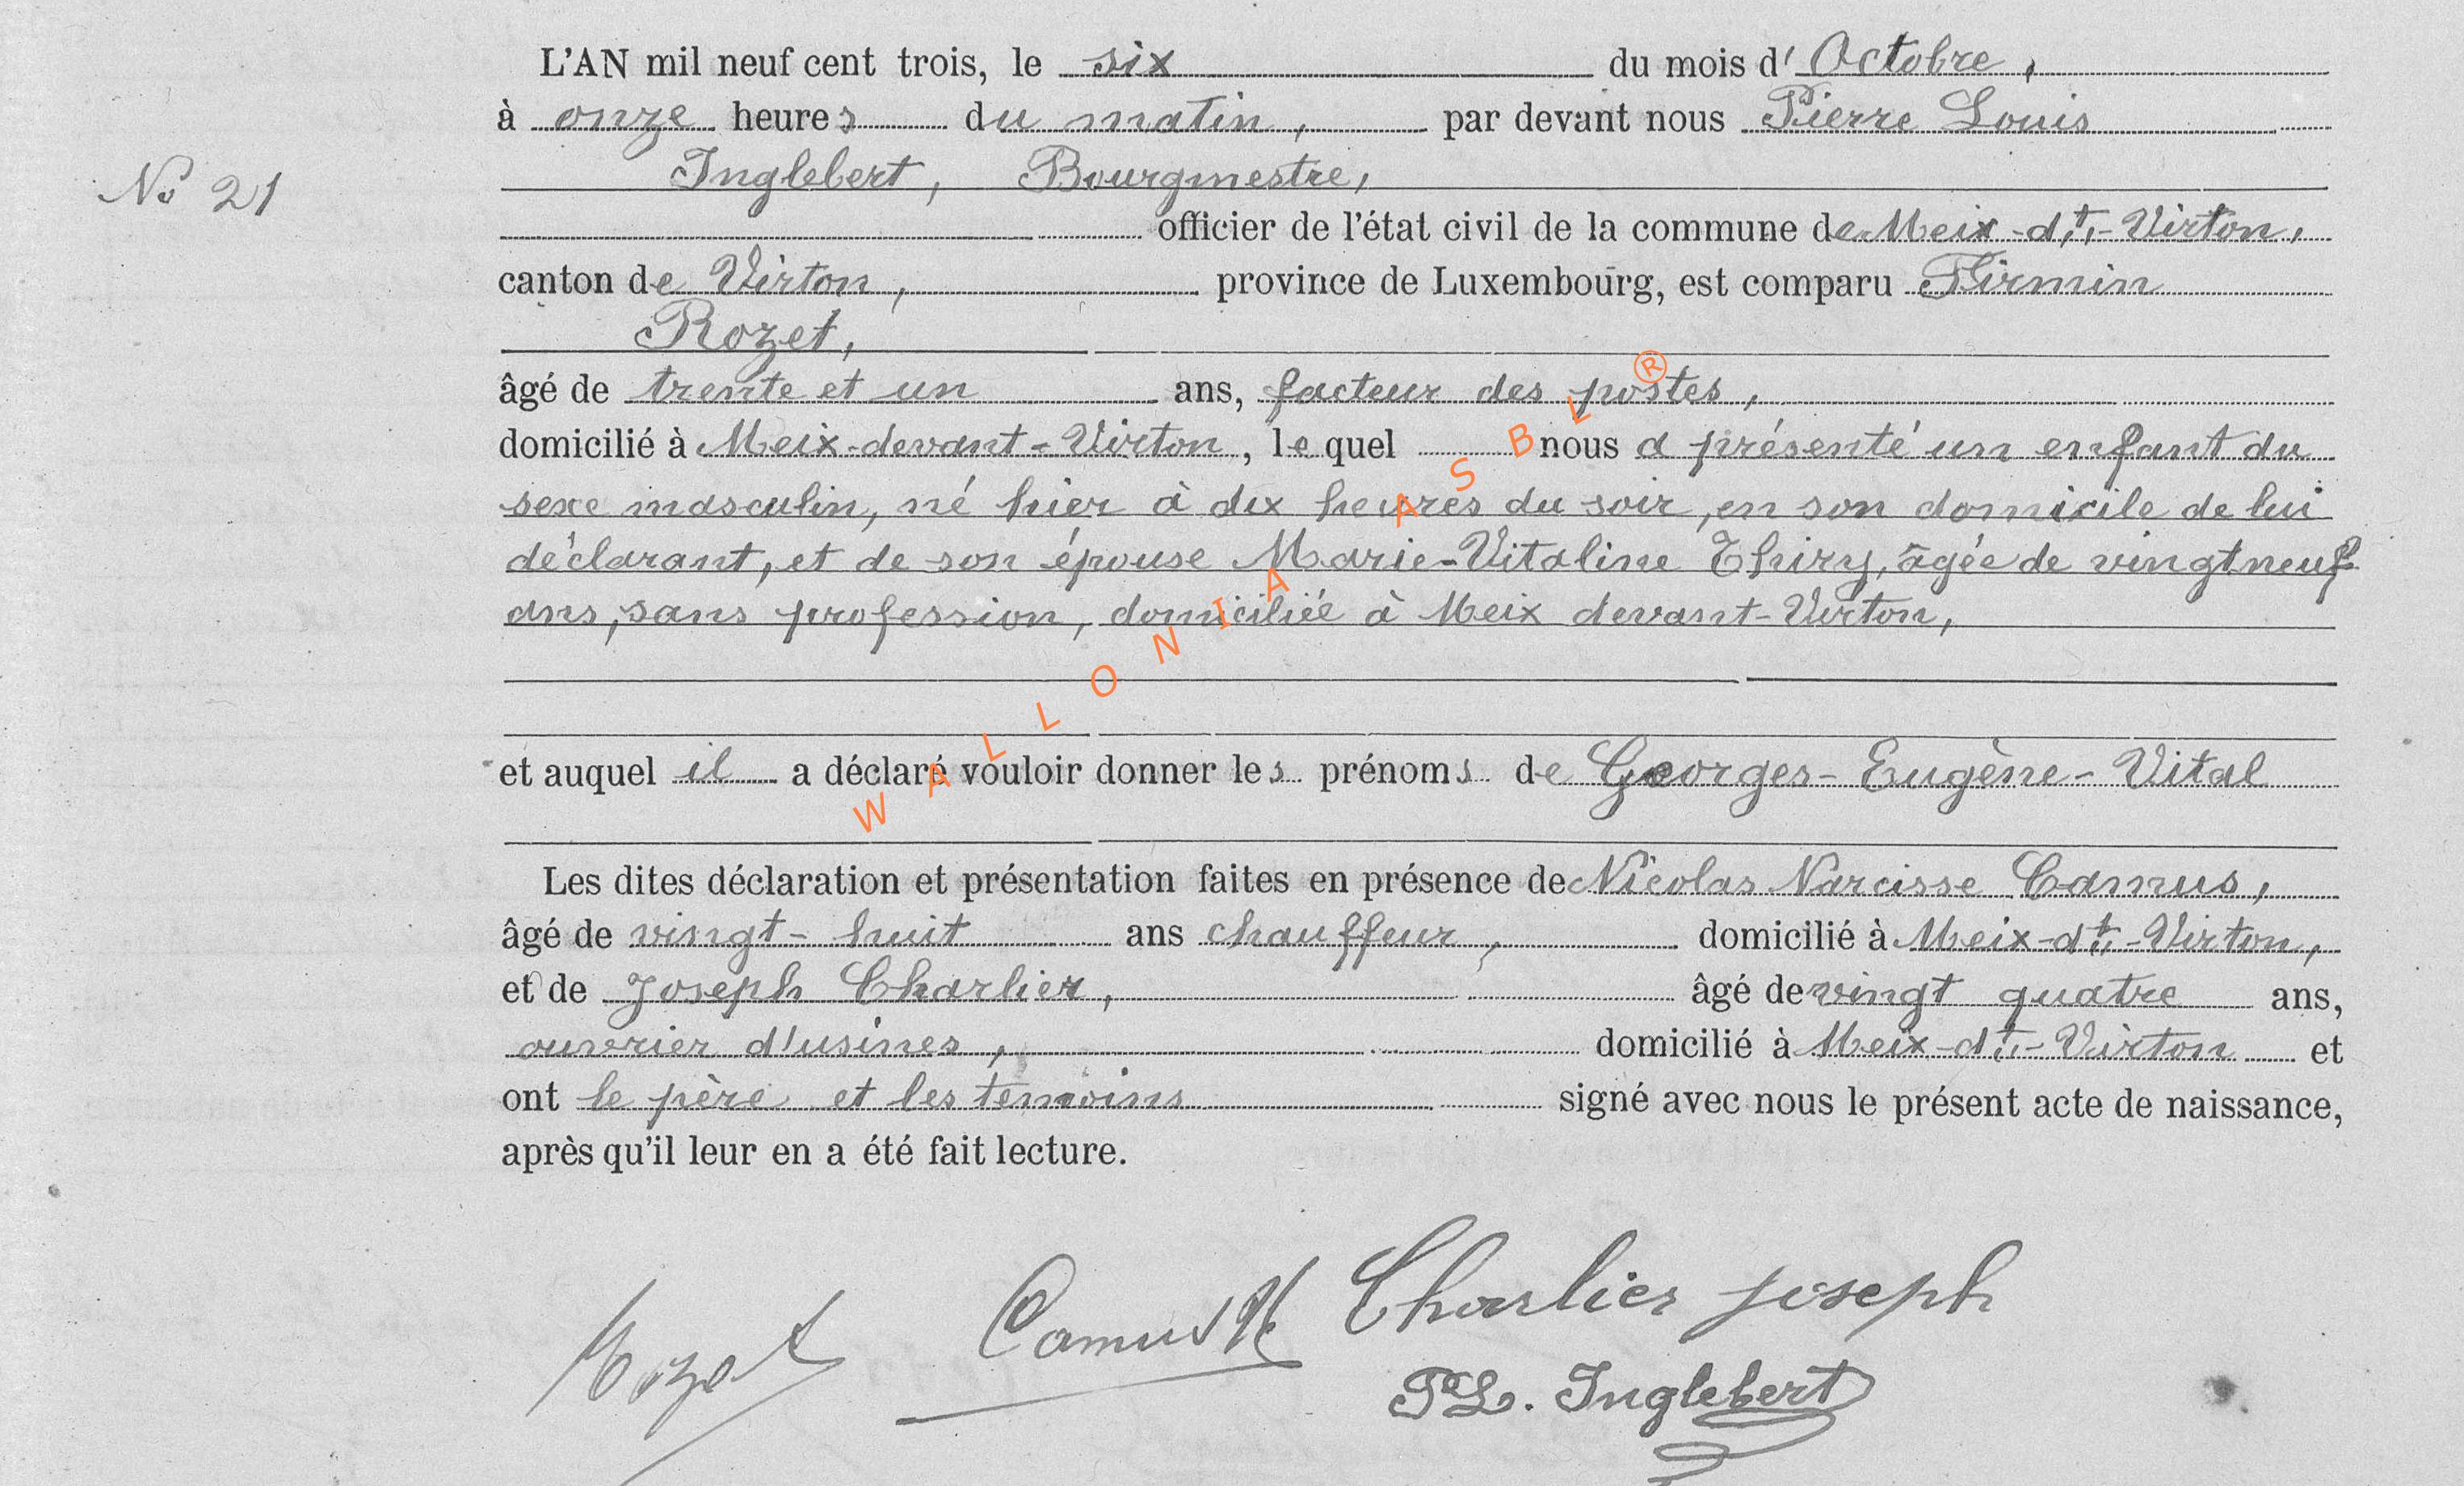 L'AN mil neuf cent trois, le six du mois d'Octobre,
à onze heures du matin, par devant nous Pierre Louis
Inglebert, Bourgmestre,
No 21
officier de l'état civil de la commune de Meix-dt-Virton,
canton de Virton, province de Luxembourg, est comparu Firmin
Rozet,
âgé de trente et un ans, facteur des postes,
domicilié à Meix-devant-Virton, lequel nous a présenté un enfant du
sexe masculin, né hier à dix heures du soir, en son domicile de lui
déclarant, et de son épouse Marie-Vitaline Thiry, âgée de vingt neuf
ans, sans profession, domiciliée à Meix devant-Virton,
et auquel il a déclaré vouloir donner les prénoms de Georges-Eugène-Vital
Les dites déclaration et présentation faites en présence de Nicolas Narcisse Camus,
âgé de vingt-huit ans chauffeur, domicilié à Meix-dt-Virton,
et de Joseph Charlier, âgé de vingt quatre ans,
ouvrier d'usines, domicilié à Meix-dt-Virton et
ont le père et les témoins signé avec nous le présent acte de naissance,
après qu'il leur en a été fait lecture.
Rozet Camus N Charlier Joseph
PL. Inglebert
WALLONIA ASBL ®